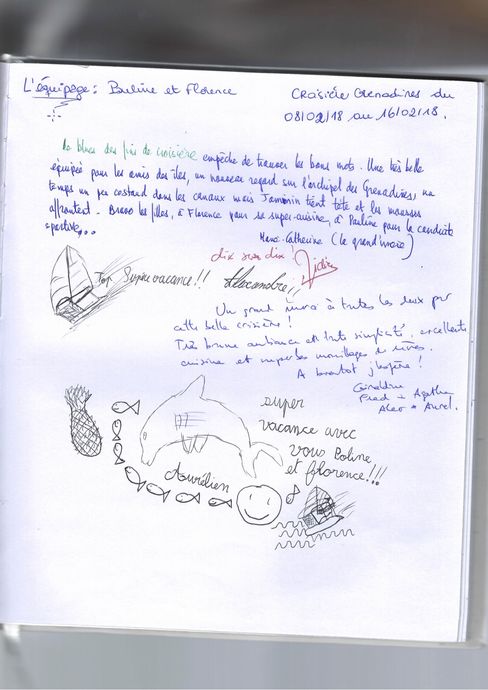 L'équipage : Pauline et Florence
Croisière Grenadines du
08/02/18 au 16/02/18.
Le blues des fins de croisière empêche de trouver les bons mots. Une très belle
équipée pour les amis des îles, un nouveau regard sur l'archipel des Grenadines, un
temps un peu costaud dans les canaux mais Jasmin tient tête et les mousses
affrontent. Bravo les filles, à Florence pour sa super-cuisine, à Pauline pour la conduite
sportive...
Marie-Catherine (la grand'mère)
dix sur dix !
Top Super vacance !! Alexandre,,
Un grand merci à toutes les deux pour
cette belle croisière !
Très bonne ambiance en toute simplicité, excellente
cuisine et superbes mouillages de rêves.
A bientôt j'espère !
Géraldine
Fred + Agathe
Alex + Aurel.
super
vacance avec
vous Poline
et fflorence !!!
Aurélien